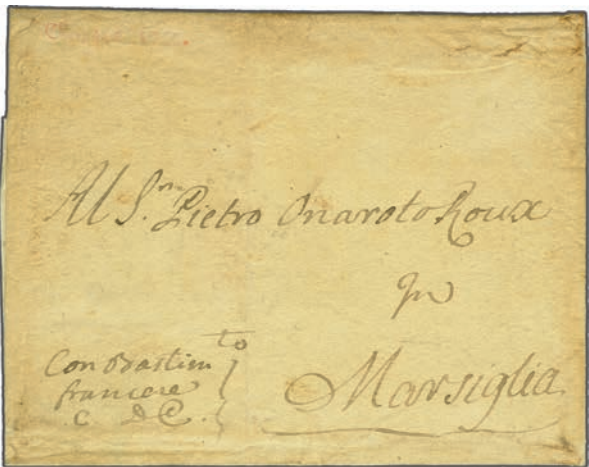 Al S.r Pietro Onorato Roux
In
Marsiglia
Con Bastim.to
francese
C D C.